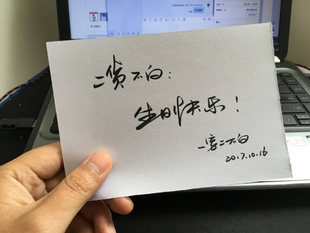 二货不白：
生日快乐！
一客二不白
2017.10.16